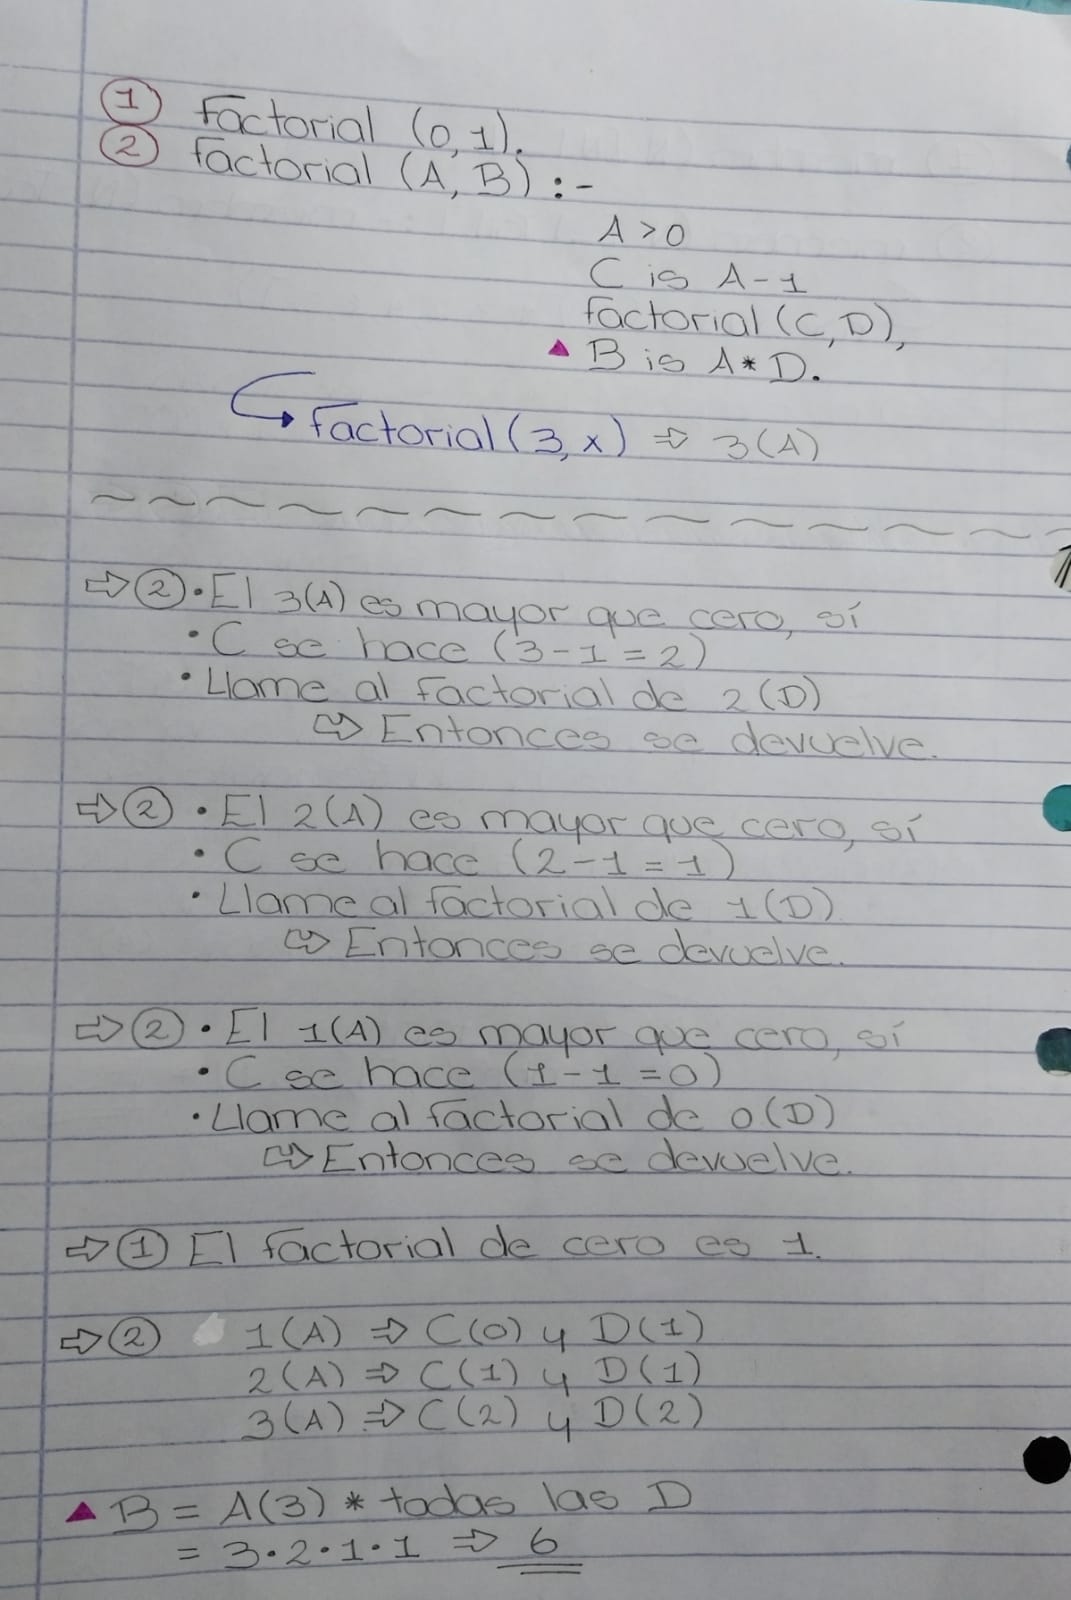 ① Factorial (0,1).
② factorial (A, B) :-
A > 0
C is A-1
factorial (C, D),
▲ B is A * D.
Factorial (3, x) ⇒ 3(A)
⇒ ② • El 3(A) es mayor que cero, sí
• C se hace (3-1=2)
• Llame al factorial de 2(D)
⇒ Entonces se devuelve.
⇒ ② • El 2(A) es mayor que cero, sí
• C se hace (2-1=1)
• Llame al factorial de 1(D)
⇒ Entonces se devuelve.
⇒ ② • El 1(A) es mayor que cero, sí
• C se hace (1-1=0)
• Llame al factorial de 0(D)
⇒ Entonces se devuelve.
⇒ ① El factorial de cero es 1.
⇒ ② 1(A) ⇒ C(0) y D(1)
2(A) ⇒ C(1) y D(1)
3(A) ⇒ C(2) y D(2)
▲ B = A(3) * todas las D
= 3•2•1•1 ⇒ 6